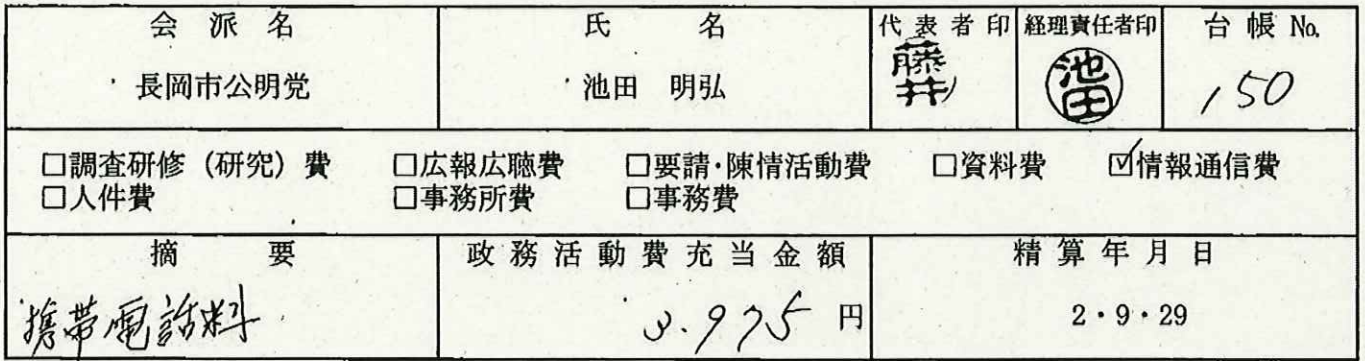 会派名 氏名 代表者印 経理責任者印 台帳No.
長岡市公明党 池田 明弘 藤井 池田 150
□調査研修（研究）費 □広報広聴費 □要請・陳情活動費 □資料費 ☑情報通信費
□人件費 □事務所費 □事務費
摘要 政務活動費充当金額 精算年月日
携帯電話料 3.975 円 2・9・29